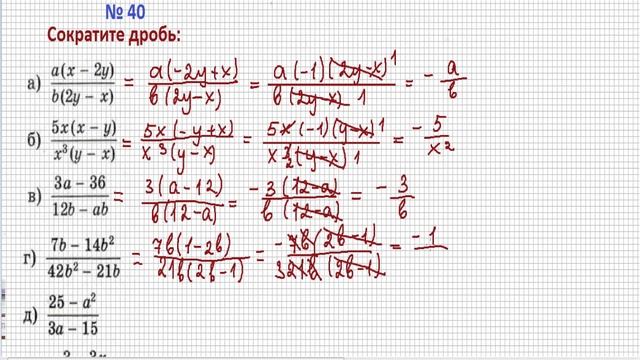 № 40
Сократите дробь:
а) a(x − 2y) / b(2y − x) = a(−2y+x) / b(2y−x) = a(−1)(2y−x) 1 / b(2y−x) 1 = − a / b
б) 5x(x − y) / x³(y − x) = 5x(−y+x) / x³(y−x) = 5x(−1)(y−x) 1 / x³ 2 (y−x) 1 = − 5 / x²
в) 3a − 36 / 12b − ab = 3(a−12) / b(12−a) = −3(12−a) / b(12−a) = − 3 / b
г) 7b − 14b² / 42b² − 21b = 7b(1−2b) / 21b(2b−1) = −7b(2b−1) / 3 21b(2b−1) = −1
д) 25 − a² / 3a − 15